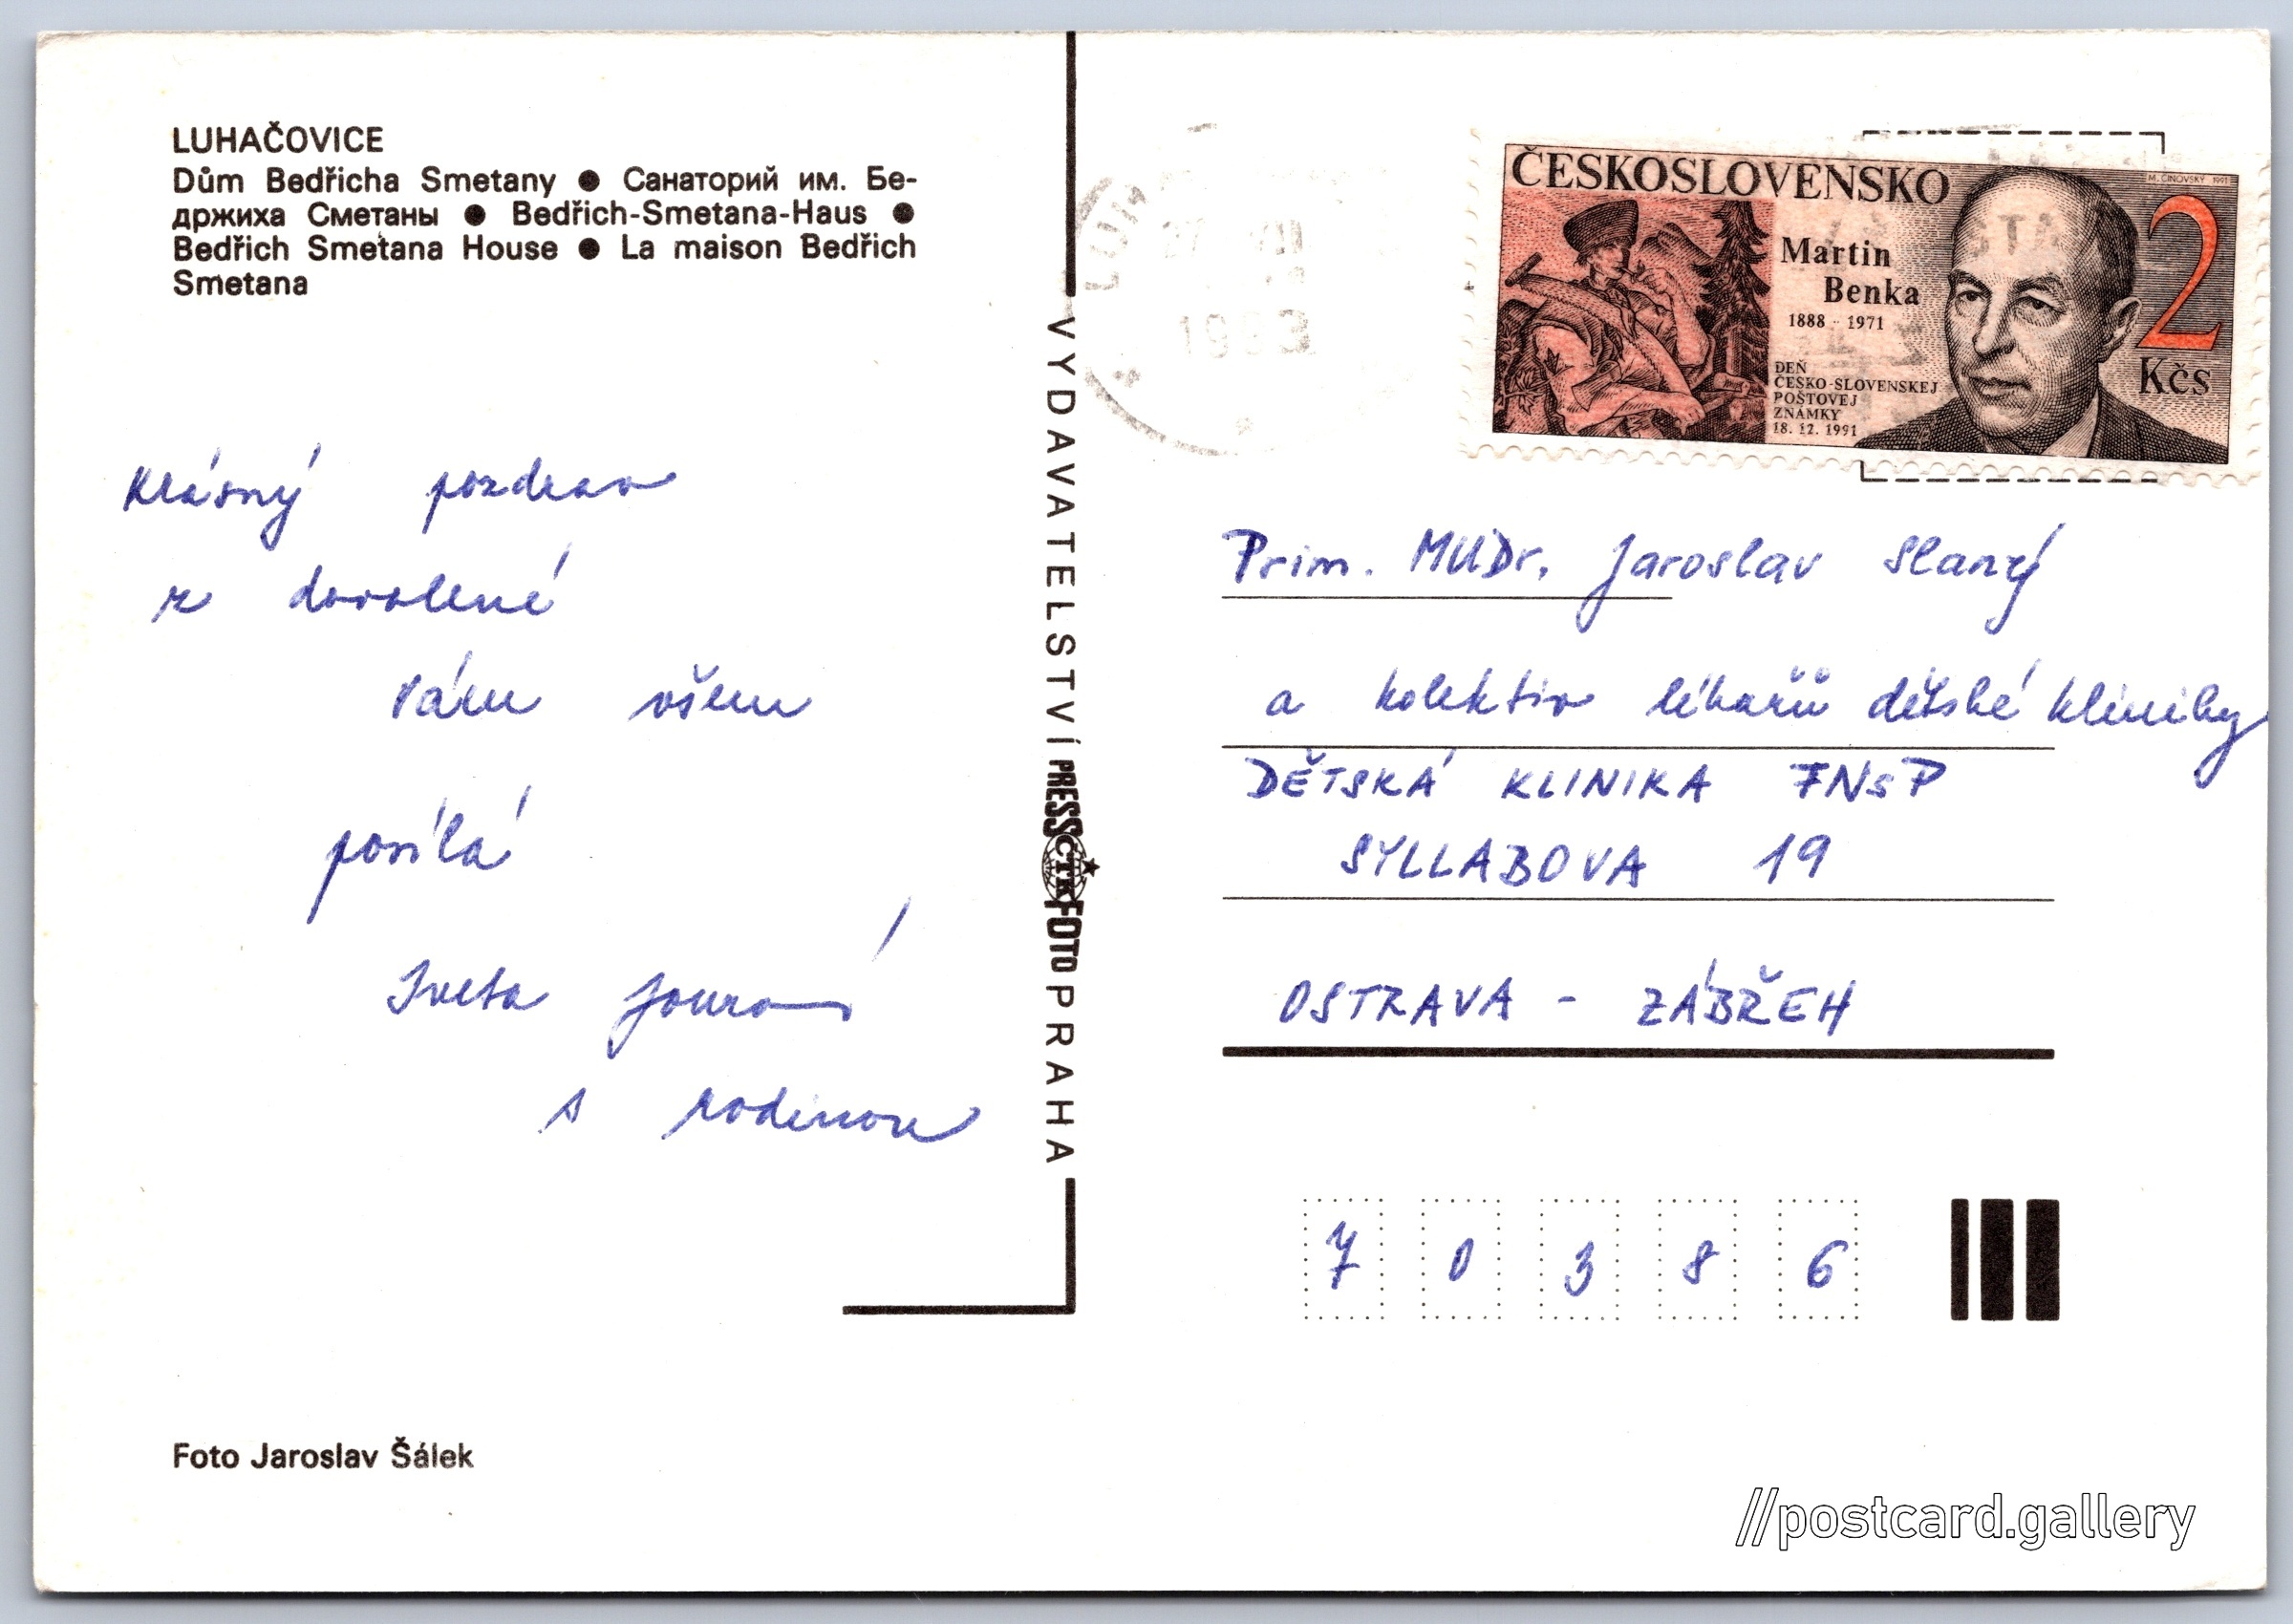 LUHAČOVICE
Dům Bedřicha Smetany ● Санаторий им. Бе-
држиха Сметаны ● Bedřich-Smetana-Haus ●
Bedřich Smetana House ● La maison Bedřich
Smetana
Krásný pozdrav
z dovolené
Vám všem
posílá
Iveta
s rodinou
Foto Jaroslav Šálek
VYDAVATELSTVÍ PRESSFOTO PRAHA
ČTK
LUH
1993
ČESKOSLOVENSKO
M. ČINOVSKÝ 1991
2
Kčs
Martin
Benka
1888 - 1971
DEŇ
ČESKO-SLOVENSKEJ
POŠTOVEJ
ZNÁMKY
18. 12. 1991
Prim. MUDr. Jaroslav Slaný
a kolektiv lékařů dětské kliniky
DĚTSKÁ KLINIKA FNsP
SYLLABOVA 19
OSTRAVA - ZÁBŘEH
7 0 3 8 6
//postcard.gallery